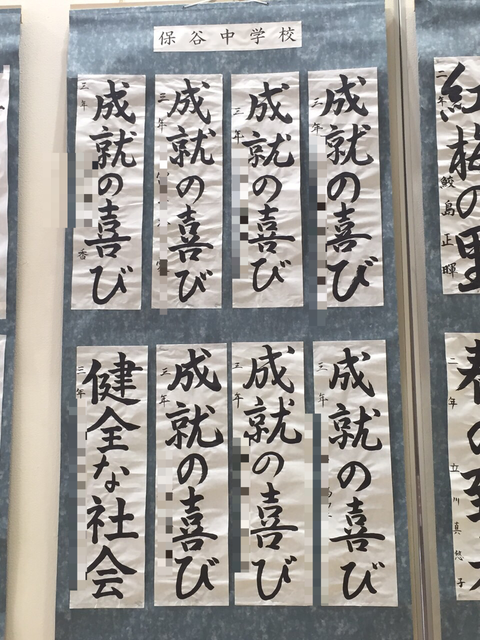 保谷中学校
成就の喜び
三年
成就の喜び
三年
成就の喜び
三年
成就の喜び
三年 香
成就の喜び
三年
成就の喜び
三年
成就の喜び
三年
健全な社会
三年
紅梅の里
二年 鮫島正暉
二年 立川真悠子